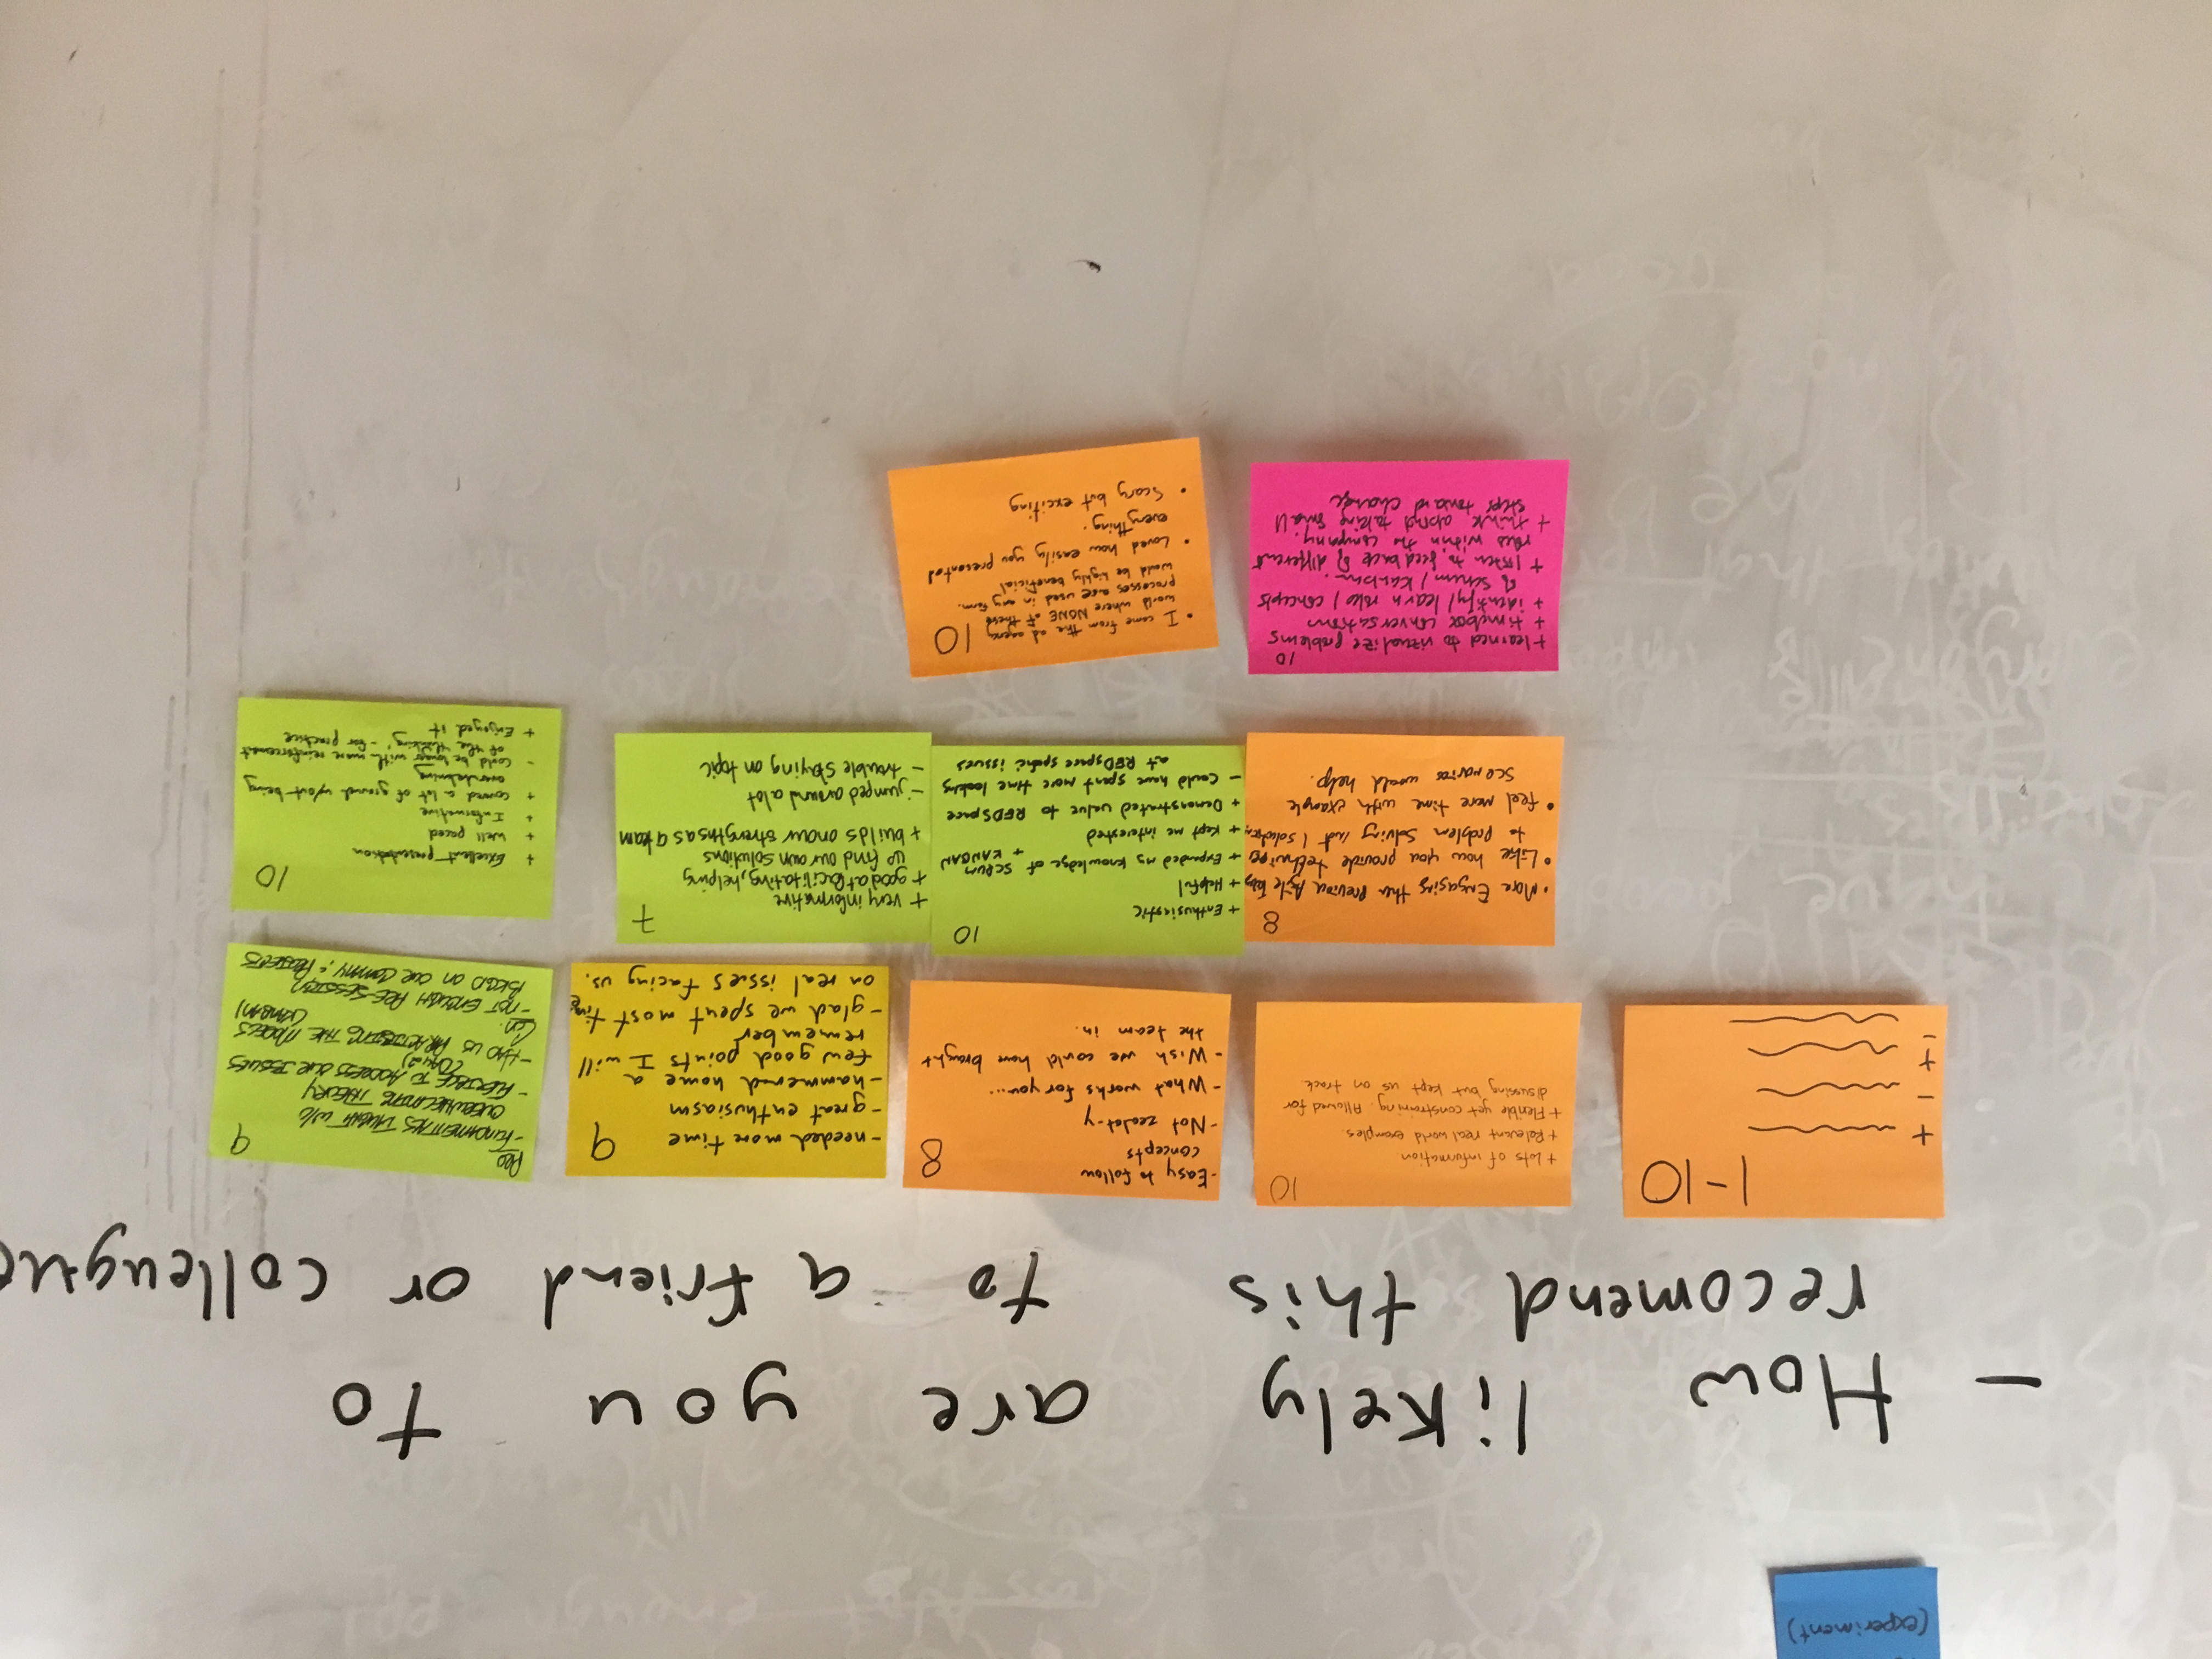 (experiment)
- How likely are you to
recomend this to a friend or colleugue
1-10
+
-
+
-
10
+ Lots of information.
+ Relevant real world examples.
+ Flexible yet constraining. Allowed for
disussing but kept us on track.
8
- Easy to follow
concepts
- Not zealot-y
- What works for you...
- Wish we could have brought
the team in.
9
- needed more time
- great enthusiasm
- hammered home a
few good points I will
remember
- glad we spent most time
on real issues facing us.
9
PRO
- FUNDAMENTALS TAUGHT W/O
OVERWHELMING THEORY
- FLEXIBLE TO ADDRESS OUR ISSUES
(DAY 2)
- HAD US PRACTISING THE MODELS
(KANBAN)
CON.
- NOT ENOUGH PRE-SESSION
BKGD ON OUR COMPANY & PROJECTS
8
• More Engaging then previous Agile
• Like how you provide techniques
to problem solving not 1 solution
• feel more time with example
scenarios would help.
10
+ Enthusiastic
+ Helpful
+ Expanded my knowledge of SCRUM
+ KANBAN
+ Kept me interested
+ Demonstrated value to REDSpace
- Could have spent more time looking
at REDspace specific issues
7
+ very informative
+ good at facilitating, helping
us find our own solutions
+ builds on our strengths as a team
- jumped around a lot
- trouble staying on topic
10
+ Excellent presentation
+ Well paced
+ Informative
+ covered a lot of ground w/out being
overwhelming
- Could be longer with more reinforcement
of the 'thinking' - for practice
+ Enjoyed it
10
+ learned to vizualize problems
+ timebox conversations
+ identify / learn roles / concepts
of scrum / kanban.
+ listen to feedback of different
roles within the company.
+ think about taking small
steps toward change
10
• I come from the ad agency
world where NONE of these
processes are used in any form.
would be highly beneficial
• Loved how easily you presented
everything.
• Scary but exciting